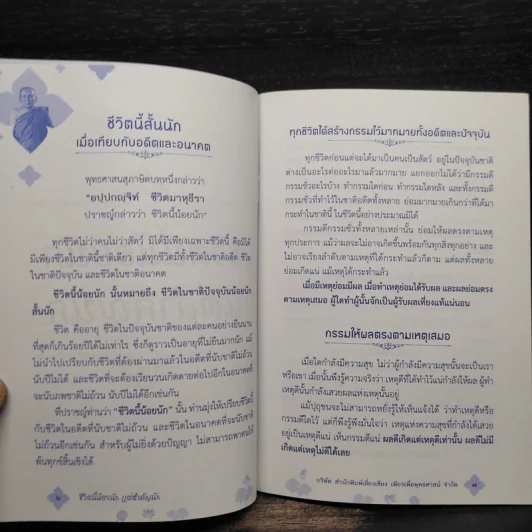 ชีวิตนี้สั้นนัก
เมื่อเทียบกับอดีตและอนาคต
พุทธศาสนสุภาษิตบทหนึ่งกล่าวว่า
"อปฺปกญฺจิทํ ชีวิตมาหุธีรา
ปราชญ์กล่าวว่า ชีวิตนี้น้อยนัก"
ทุกชีวิตไม่ว่าคนไม่ว่าสัตว์ มิได้มีเพียงเฉพาะชีวิตนี้ คือมิได้
มีเพียงชีวิตในชาตินี้ชาติเดียว แต่ทุกชีวิตมีทั้งชีวิตในอดีต ชีวิต
ในชาติปัจจุบัน และชีวิตในชาติอนาคต
ชีวิตนี้น้อยนัก นั้นหมายถึง ชีวิตในชาติปัจจุบันน้อยนัก
สั้นนัก
ชีวิต คืออายุ ชีวิตในปัจจุบันชาติของแต่ละคนอย่างยืนนาน
ที่สุดก็เกินร้อยปีได้ไม่เท่าไร ซึ่งก็ดูราวเป็นอายุที่ไม่ยืนมากนัก แม้
ไม่นำไปเปรียบกับชีวิตที่ต้องผ่านมาแล้วในอดีตที่นับชาติไม่ถ้วน
นับปีไม่ได้ และชีวิตที่จะต้องเวียนวนเกิดตายต่อไปอีกในอนาคตที่
จะนับภพชาติไม่ถ้วน นับปีไม่ได้อีกเช่นกัน
ที่ปราชญ์ท่านว่า "ชีวิตนี้น้อยนัก" นั้น ท่านมุ่งให้เปรียบชีวิตนี้
กับชีวิตในอดีตที่นับชาติไม่ถ้วน และชีวิตในอนาคตที่จะนับชาติ
ไม่ถ้วนอีกเช่นกัน สำหรับผู้ไม่ยิ่งด้วยปัญญา ไม่สามารถพาตนให้
พ้นทุกข์สิ้นเชิงได้
๖ ชีวิตนี้น้อยนัก แต่สำคัญนัก
ทุกชีวิตได้สร้างกรรมไว้มากมายทั้งอดีตและปัจจุบัน
ทุกชีวิตก่อนแต่จะได้มาเป็นคนเป็นสัตว์ อยู่ในปัจจุบันชาติ
ต่างเป็นอะไรต่ออะไรมาแล้วมากมาย แยกออกไม่ได้ว่ามีกรรมดี
กรรมชั่วอะไรบ้าง ทำกรรมใดก่อน ทำกรรมใดหลัง และทั้งกรรมดี
กรรมชั่วที่ทำไว้ในชาติอดีตทั้งหลาย ย่อมมากมายเกินกว่าที่ได้มา
กระทำในชาตินี้ ในชีวิตนี้อย่างประมาณมิได้
กรรมดีกรรมชั่วทั้งหลายเหล่านั้น ย่อมให้ผลตรงตามเหตุ
ทุกประการ แม้ว่าผลจะไม่อาจเกิดขึ้นพร้อมกันทุกสิ่งทุกอย่าง และ
ไม่อาจเรียงลำดับตามเหตุที่ได้กระทำแล้วก็ตาม แต่ผลทั้งหลาย
ย่อมเกิดแน่ แม้เหตุได้กระทำแล้ว
เมื่อมีเหตุย่อมมีผล เมื่อทำเหตุย่อมได้รับผล และผลย่อมตรง
ตามเหตุเสมอ ผู้ใดทำผู้นั้นจักเป็นผู้รับผลเที่ยงแท้แน่นอน
กรรมให้ผลตรงตามเหตุเสมอ
เมื่อใดกำลังมีความสุข ไม่ว่าผู้กำลังมีความสุขนั้นจะเป็นเรา
หรือเขา เมื่อนั้นพึงรู้ความจริงว่า เหตุดีที่ได้ทำไว้แน่กำลังให้ผล ผู้ทำ
เหตุดีนั้นกำลังเสวยผลแห่งเหตุนั้นอยู่
แม้ปุถุชนจะไม่สามารถหยั่งรู้ให้เห็นแจ้งได้ ว่าทำเหตุดีหรือ
กรรมดีใดไว้ แต่ก็พึงรู้พึงมั่นใจว่า เหตุแห่งความสุขที่กำลังได้เสวย
อยู่เป็นเหตุดีแน่ เห็นกรรมดีแน่ ผลดีเกิดแต่เหตุดีเท่านั้น ผลดีไม่มี
เกิดแต่เหตุไม่ดีได้เลย
บริษัท สำนักพิมพ์เลี่ยงเชียง เพียรเพื่อพุทธศาสน์ จำกัด ๗